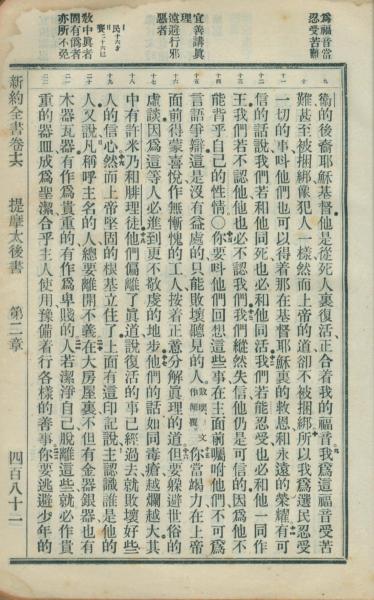 爲福音當
忍受苦難
宜善講眞
理
遠避行邪
惡者
民十六才
賽二十六已
教中眞者
間有僞者
亦所不免
九
十
十一
十二
十三
十四
十五
十六
十七
十八
十九
二十
二一
二二
衛的後裔耶穌基督他是從死人裏復活正合着我的福音我爲這福音受苦
難甚至被捆綁像犯人一樣然而上帝的道卻不被捆綁所以我爲選民忍受
一切的事呌他們也可以得着那在基督耶穌裏的救恩和永遠的榮耀有可
信的話說我們若和他同死也必和他同活我們若能忍受也必和他一同作
王我們若不認他他也必不認我們我們縱然失信他仍是可信的因爲他不
能背乎自己的性情○你要呌他們回想這些事在主面前囑咐他們不可爲
言語爭辯這是沒有益處的只能敗壞聽見的人敗壞文作傾覆你當竭力在上帝
面前得蒙喜悅作無慚愧的工人按着正意分解眞理的道但要躲避世俗的
虛談因爲這等人必進到更不敬虔的地步他們的話如同毒瘡越爛越大其
中有許米乃和腓理徒他們偏離了眞道說復活的事已經過去就敗壞好些
人的信心然而上帝堅固的根基立住了上面有這印記說主認識誰是他的
人又說凡稱呼主名的人總要離開不義在大房屋裏不但有金器銀器也有
木器瓦器有作爲貴重的有作爲卑賤的人若潔淨自己脫離這些就必作貴
重的器皿成爲聖潔合乎主人使用豫備着行各樣的善事你要逃避少年的
新約全書卷十六　提摩太後書　第二章　四百八十二